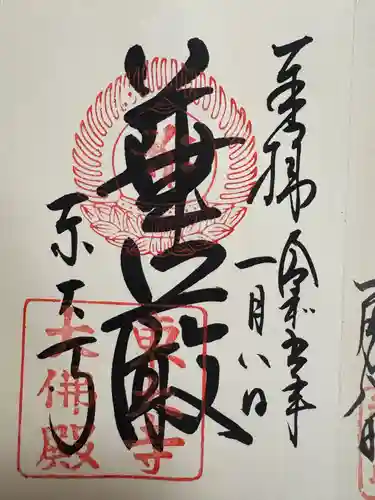 奉拝
令和五年
一月八日
華厳
東大寺
東大寺
大佛殿